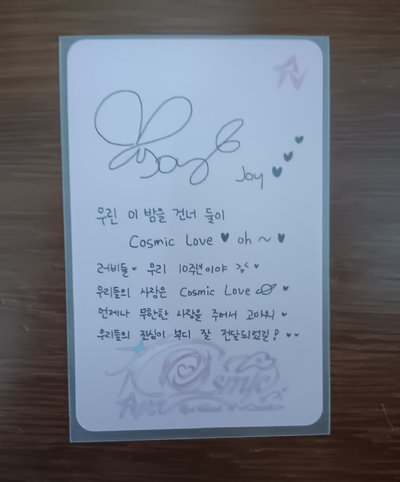 Joy ♥♥♥
우린 이 밤을 건너 둘이
Cosmic Love ♥ oh ~ ♥
러비들♥ 우리 10주년이야 ♥
우리들의 사랑은 Cosmic Love ♥
언제나 무한한 사랑을 주어서 고마워 ♥
우리들의 진심이 부디 잘 전달되었길! ♥♥
Cosmic